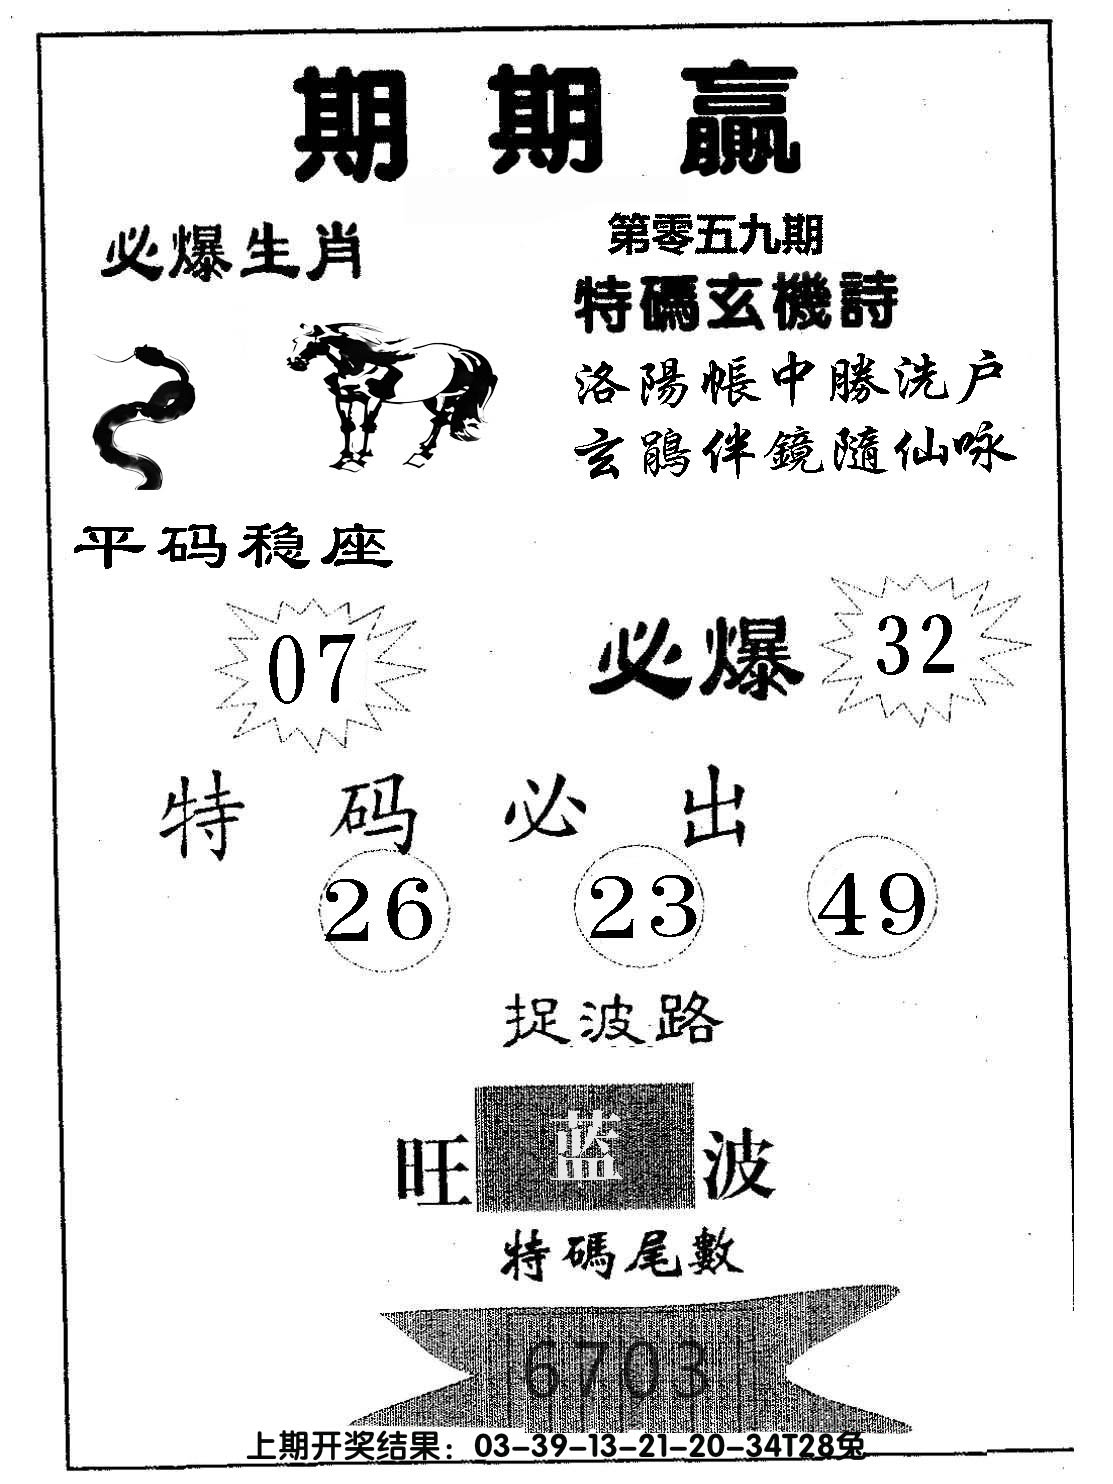 期期赢
必爆生肖
第零五九期
特碼玄機詩
洛陽帳中勝洗户
玄鵑伴鏡隨仙咏
平码稳座
07
必爆 32
特码必出
26 23 49
捉波路
旺 蓝 波
特碼尾數
6703
上期开奖结果：03-39-13-21-20-34T28兔